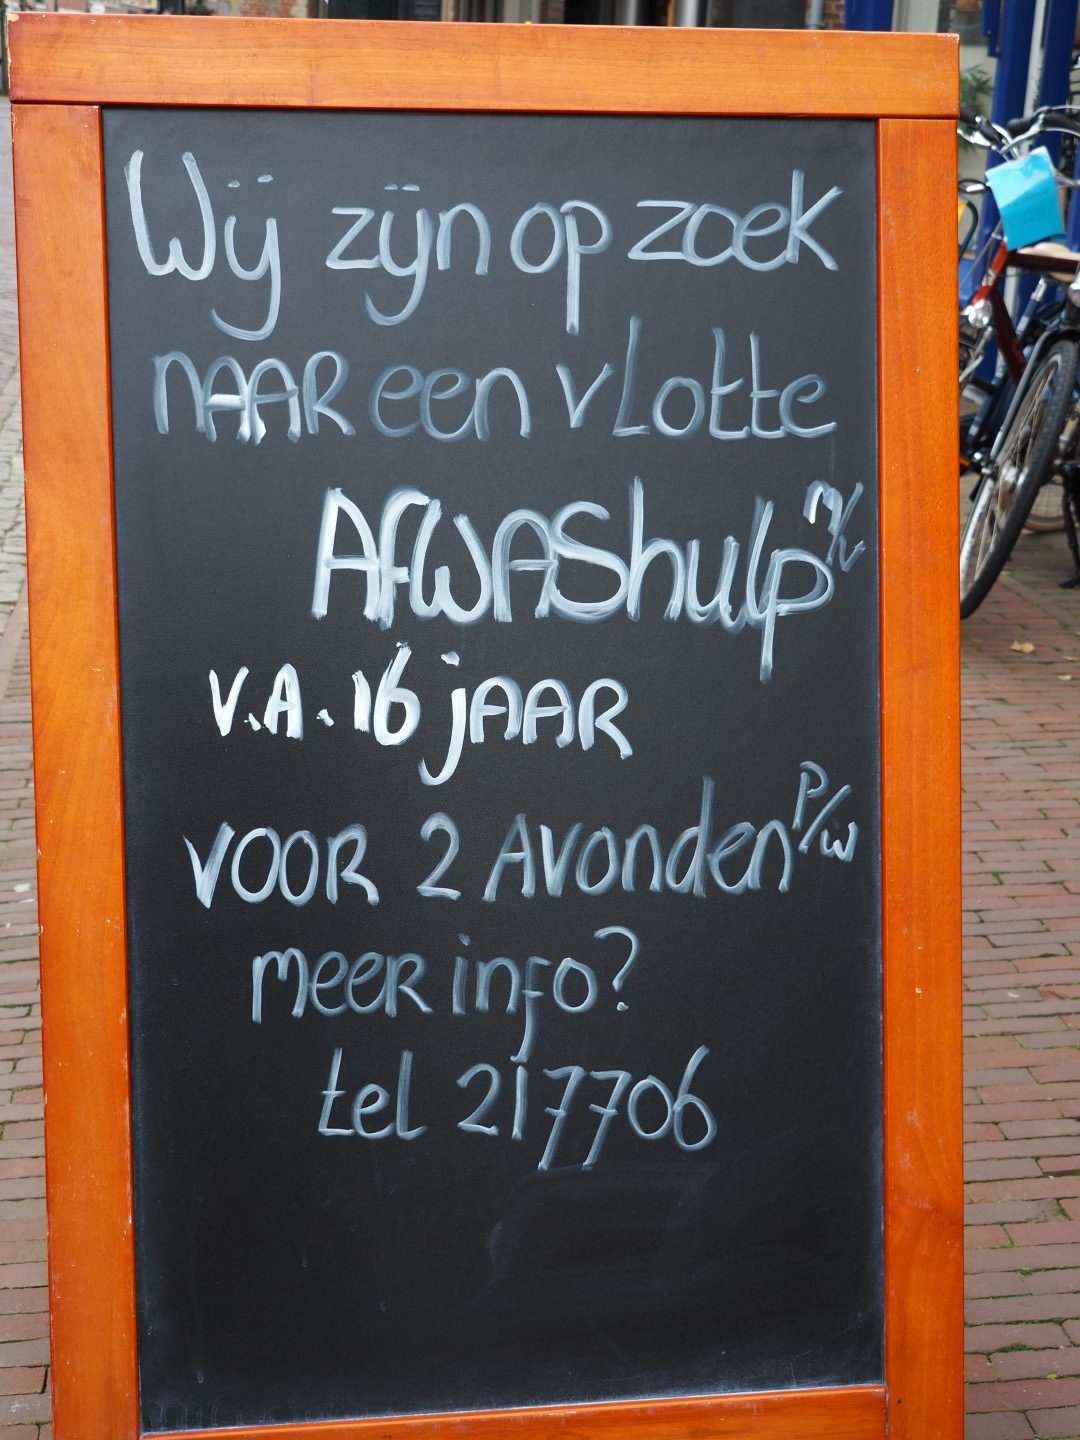 Wij zijn op zoek
naar een vlotte
Afwashulp m/v
v.a. 16 jaar
voor 2 Avonden p/w
meer info?
tel 217706